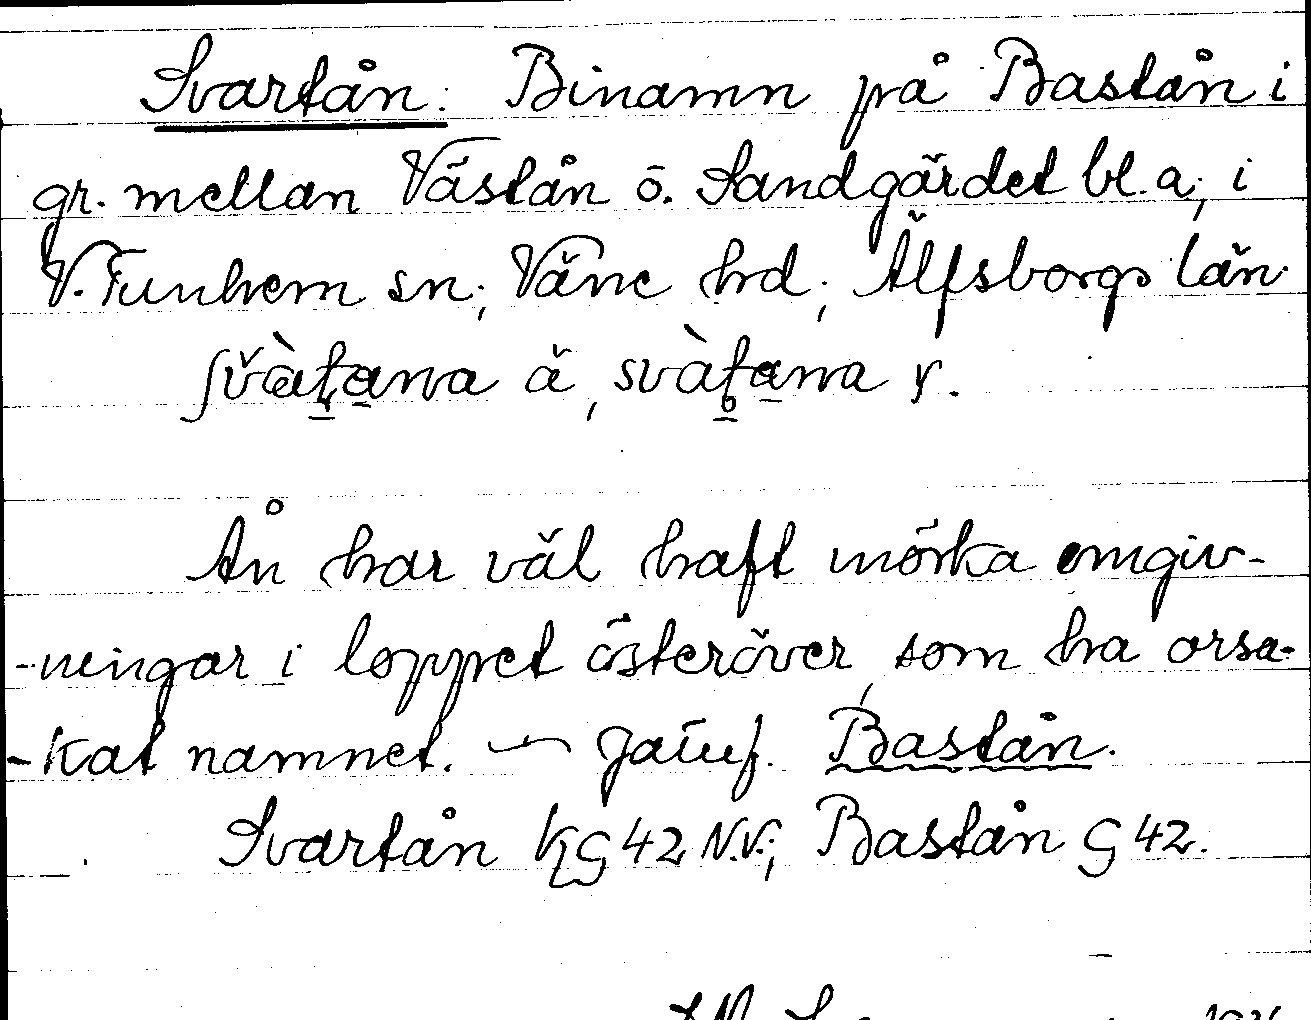 Svartån: Binamn på Bastån i
gr. mellan Västån o. Sandgärdet bl. a., i
V. Tunhem sn, Väne hd, Älfsborgs län.
ʃvàt̠a̠na ä, svàt̠a̠na y.
Ån har väl haft mörka omgiv-
-ningar i loppet österöver, som ha orsa-
-kat namnet. — Jämf. Bastån.
Svartån KG 42 N.V., Bastån G 42.